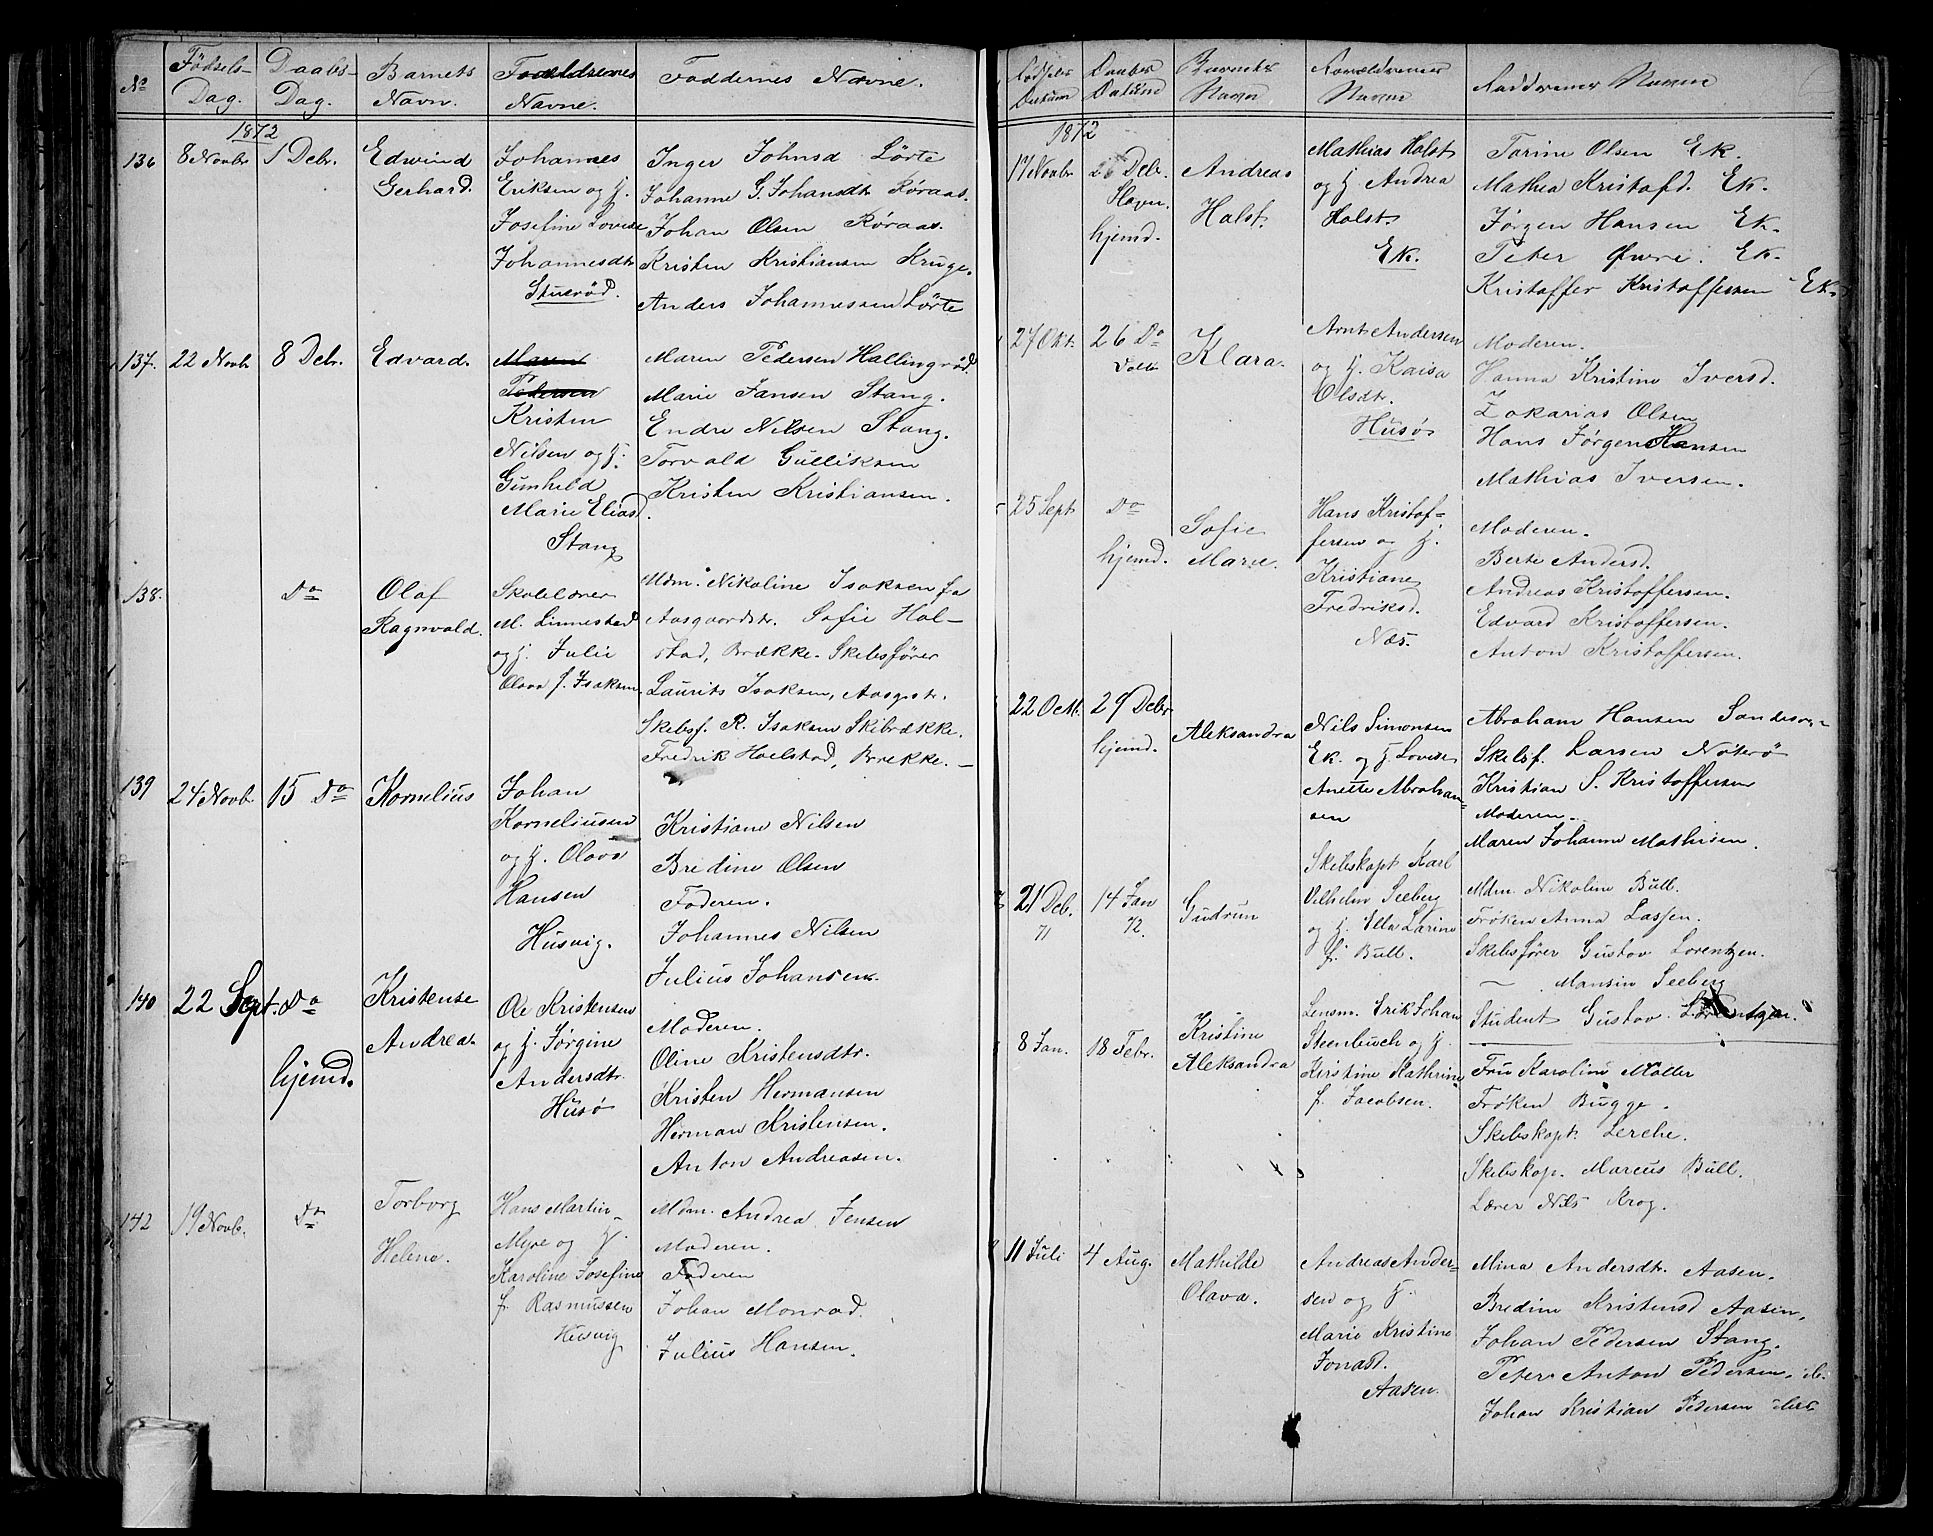 No
Födsels-
Dag.
Daabs-
Dag.
Barnets
Navn.
Forældrenes
Navne.
Faddernes Navne.
1872
136
8 Novbr
1 Debr.
Edwind
Gerhard.
Johannes
Eriksen og H.
Josefine Lovise
Johannesdtr
Stuerød.
Inger Johnsd Lörte
Johanne G. Johansdtr Røraas.
Johan Olsen Røraas.
Kristen Kristiansen Kruge.
Anders Johannessen Lörte
137.
22 Novbr
8 Debr.
Edvard.
Maren
Pedersen
Kristen
Nilsen og H.
Gunhild
Marie Eliasd.
Stang
Maren Pedersen Hallingrød.
Marie Jansen Stang.
Endre Nilsen Stang.
Torvald Gulliksen
Kristen Kristiansen.
138.
Do
Olaf
Ragnvald.
Skolelærer
M. Linnestad
og H. Julie
Olava f. Isaksen.
Mdm. Nikoline Isaksen fa
Aasgaardstr. Sofie Hol-
stad, Brække. Skibsfører
Laurits Isaksen, Aasgstr.
Skibsf. R. Isaksen Skibrække.
Fredrik Hoelstad, Brække. —
139
24 Novb.
15 Do
Kornelius
Johan
Korneliusen
og H. Olava
Hansen
Husvig.
Kristiane Nilsen
Bredine Olsen
Faderen.
Johannes Nilsen
Julius Johansen.
140
22 Sept.
Do
hjemd.
Kristense
Andrea.
Ole Kristensen
og H. Jørgine
Andersdtr.
Husø
Moderen.
Oline Kristensdtr.
Kristen Hermansen
Herman Kristensen.
Anton Andreasen.
142
19 Novb.
Do
Torborg
Helene.
Hans Martin
Myre og H.
Karoline Josefine
f. Rasmussen
Husvig
Mdm. Andrea Jensen
Moderen.
Faderen
Johan Monrad.
Julius Hansen.
Födsels
Datum
Daabs
Datum
Barnets
Navn
Forældrenes
Navne
Faddernes Navne
1872
17 Novbr
26 Debr.
Slagen.
hjemd.
Andreas
Holst.
Mathias Holst
og H. Andrea
Holst.
Ek.
Torine Olsen Ek.
Mathea Kristofd. Ek.
Jørgen Hansen Ek.
Peter Øvre. Ek.
Kristoffer Kristoffersen Ek.
24 Okt.
26 Do
Klara.
Arnt Andersen
og H. Kaisa
Olsdtr.
Husø
Moderen.
Hanna Kristine Iversd.
Zakarias Olsen
Hans Jørgen Hansen
Mathias Iversen.
25 Sept
Do
hjemd.
Sofie
Marie.
Hans Kristof-
fersen og H.
Kristiane
Fredriksd.
Næs.
Moderen.
Berte Andersd.
Andreas Kristoffersen.
Edvard Kristoffersen.
Anton Kristoffersen.
22 Oct.
29 Debr
hjemd.
Aleksandra
Nils Simonsen
Ek. og H. Lovise
Anette Abraham-
sen
Abraham Hansen
Skibsf. Larsen Nøterø
Kristian S. Kristoffersen
Moderen.
Maren Johanne Mathisen.
21 Deb.
71
14 Jan
72.
Gudrun
Skibskapt Karl
Vilhelm Seeberg
og H. Ella Larine
f. Bull.
Mdm. Nikoline Bull.
Frøken Anna Lassen.
Skibsfører Gustav Lorentzen.
— Mansin Seeberg
Student Gustav Lorentzen.
8 Jan.
18 Febr.
Kristine
Aleksandra
Lensm. Erik Johan
Steenbuch og H.
Kirstine Kathrine
f. Jacobsen.
Fru Karoline Møller
Frøken Bugge.
Skibskapt. Lerche.
Skibskap. Marcus Bull.
Lærer Nils Krog.
11 Juli
4 Aug.
Mathilde
Olava.
Andreas Ander-
sen og H.
Marie Kristine
Jonasd.
Aasen.
Mina Andersdtr. Aasen.
Bredine Kristensd Aasen.
Johan Pedersen Stang.
Peter Anton Pedersen. ib.
Johan Kristian Pedersen ibid